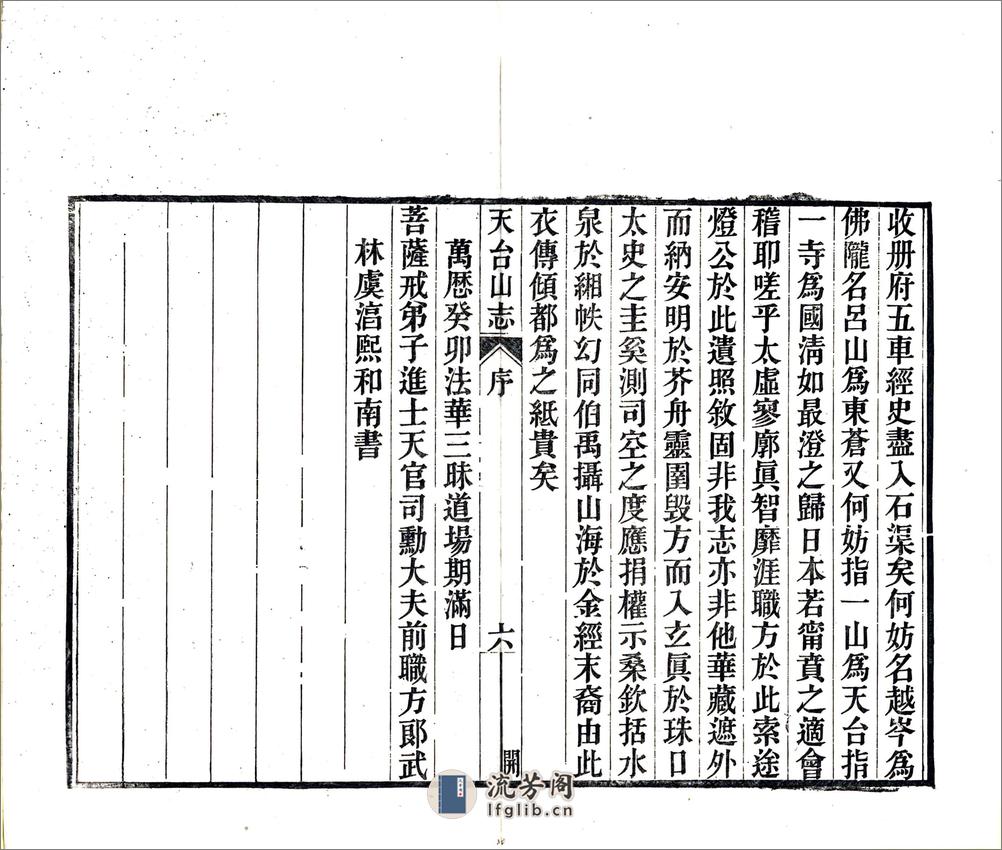 收册府五車經史盡入石渠矣何妨名越岑爲
佛隴名呂山爲東蒼又何妨指一山爲天台指
一寺爲國淸如最澄之歸日本若甯賁之適會
稽耶嗟乎太虛寥廓眞智靡涯職方於此索途
燈公於此遺照敘固非我志亦非他華藏遮外
而納安明於芥舟靈圉毀方而入玄眞於珠口
太史之圭奚測司空之度應捐權示桑欽括水
泉於緗帙幻同伯禹攝山海於金經末裔由此
衣傳傾都爲之紙貴矣
天台山志 序 六 開
萬厯癸卯法華三昧道場期滿日
菩薩戒弟子進士天官司勳大夫前職方郞武
林虞淯熙和南書
流芳阁
lfglib.cn